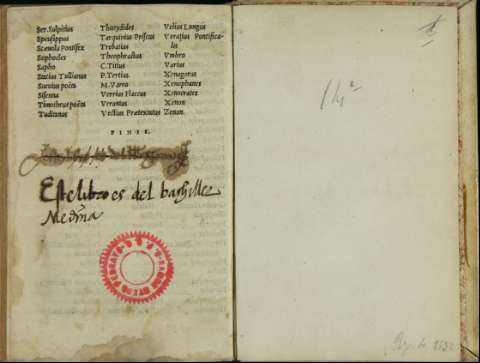 Ser. Sulpitius
Speusippus
Scaeuola Pontifex
Sophocles
Sapho
Statius Tullianus
Sueuius poëta
Sisenna
Timotheus poëta
Tuditanus
Thucydides
Tarquinius Priscus
Trebatius
Theophrastus
C. Titius
P. Tertius
M. Varro
Verrius Flaccus
Veranius
Vessius Praetextatus
Velius Longus
Veratius Pontificalis
Vmbro
Varius
Xenagoras
Xenophanes
Xenocrates
Xenon
Zenon.
FINIS.
Este libro es del bachiller
Medina